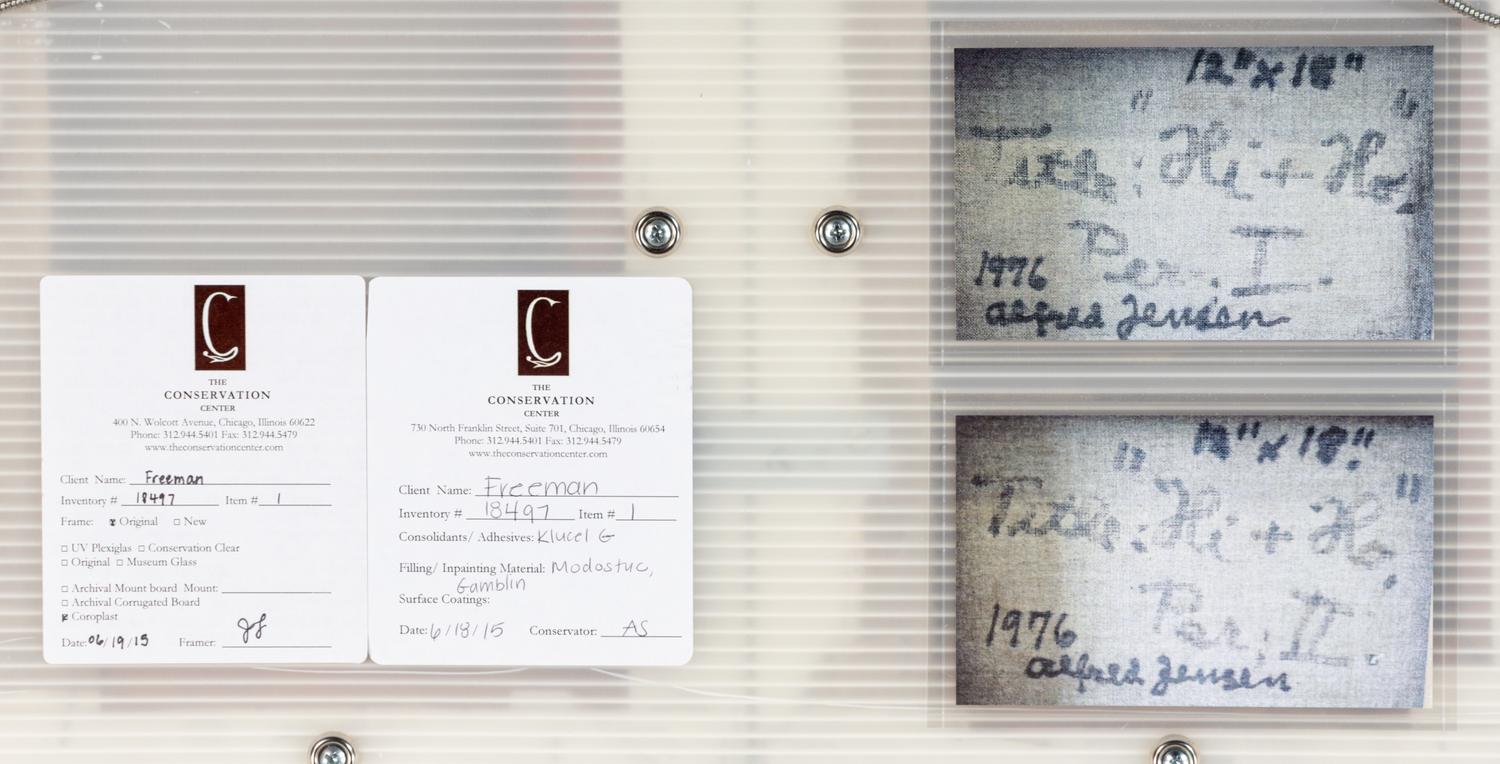 THE
CONSERVATION
CENTER
400 N. Wolcott Avenue, Chicago, Illinois 60622
Phone: 312.944.5401 Fax: 312.944.5479
www.theconservationcenter.com
Client Name: Freeman
Inventory # 18497 Item # 1
Frame: Original New
UV Plexiglas Conservation Clear
Original Museum Glass
Archival Mount board Mount:
Archival Corrugated Board
Coroplast
Date: 06/19/15 Framer: JF
THE
CONSERVATION
CENTER
730 North Franklin Street, Suite 701, Chicago, Illinois 60654
Phone: 312.944.5401 Fax: 312.944.5479
www.theconservationcenter.com
Client Name: Freeman
Inventory # 18497 Item # 1
Consolidants/ Adhesives: Klucel G
Filling/ Inpainting Material: Modostuc,
Gamblin
Surface Coatings:
Date: 6/18/15 Conservator: AS
12" x 18"
" "
Title: Hi + Ho,
Per. I.
1976
alfred Jensen
12" x 18"
" "
Title: Hi + Ho,
Per. II.
1976
alfred Jensen